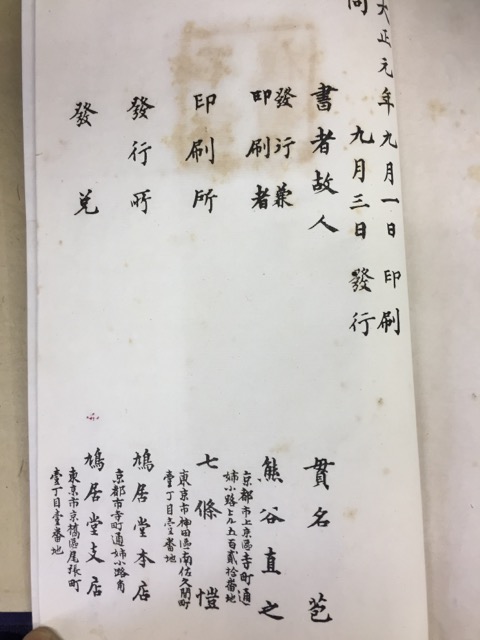 大正元年九月一日印刷
同 九月三日發行
書者故人 貫名苞
發行兼
印刷者 熊谷直之
京都市上京區寺町通
姉小路上ル五百貳拾番地
印刷所 七條愷
東京市神田區南佐久間町
壹丁目壹番地
發行所 鳩居堂本店
京都市寺町通姉小路角
發兌 鳩居堂支店
東京市京橋區尾張町
壹丁目壹番地